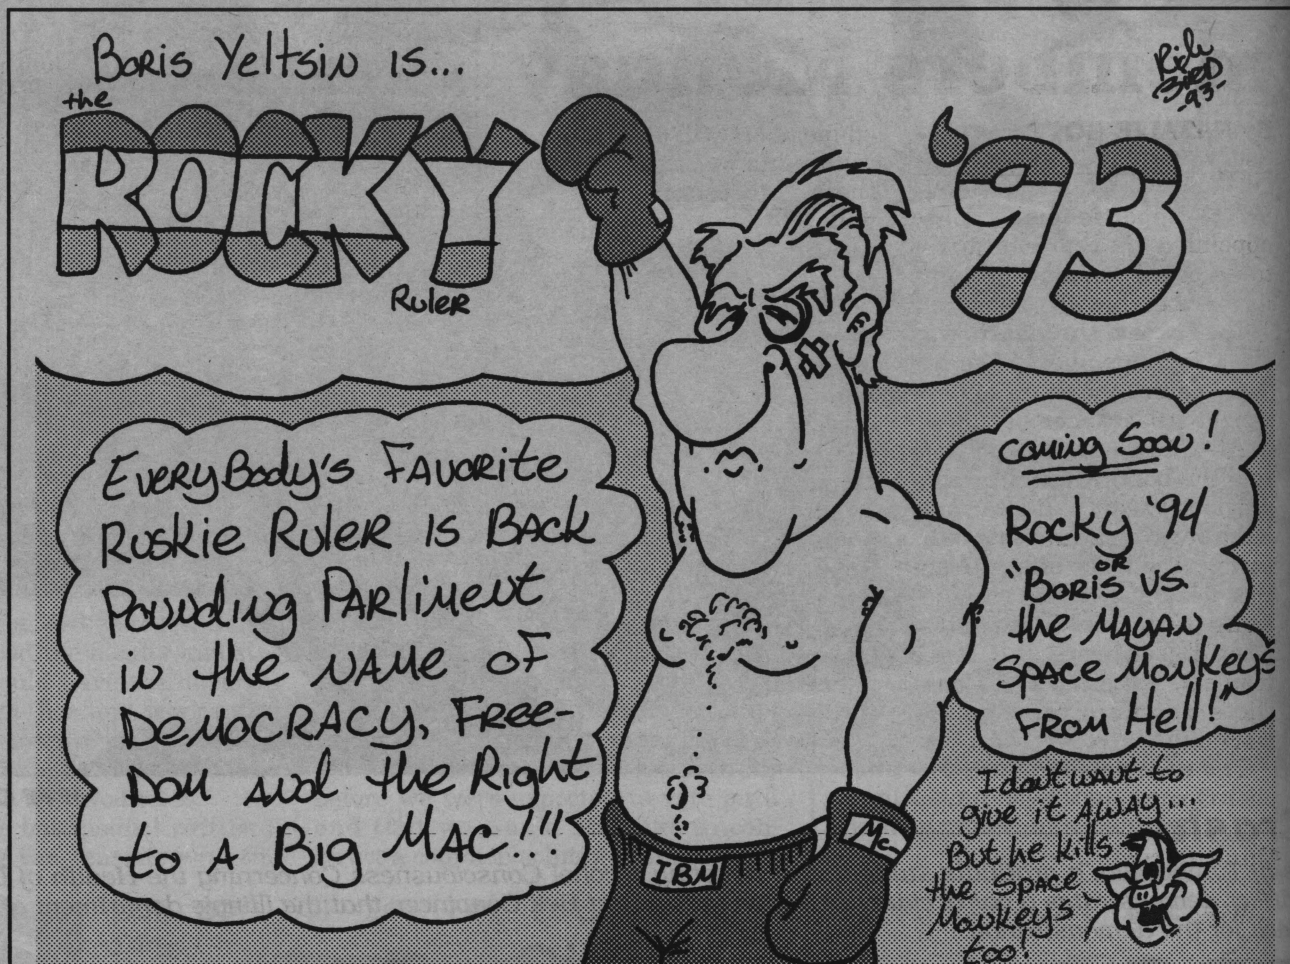 Boris Yeltsin is...
the
ROCKY
Ruler
'93
Rich
BIRD
-93-
EveryBody's Favorite
Ruskie Ruler is Back
Pounding Parliment
in the name of
Democracy, Free-
dom and the Right
to a Big Mac!!!
Coming Soon!
Rocky '94
or
"Boris vs.
the Mayan
Space Monkeys
From Hell!"
I don't want to
give it away...
But he kills
the Space
Monkeys
too!
IBM
Mc